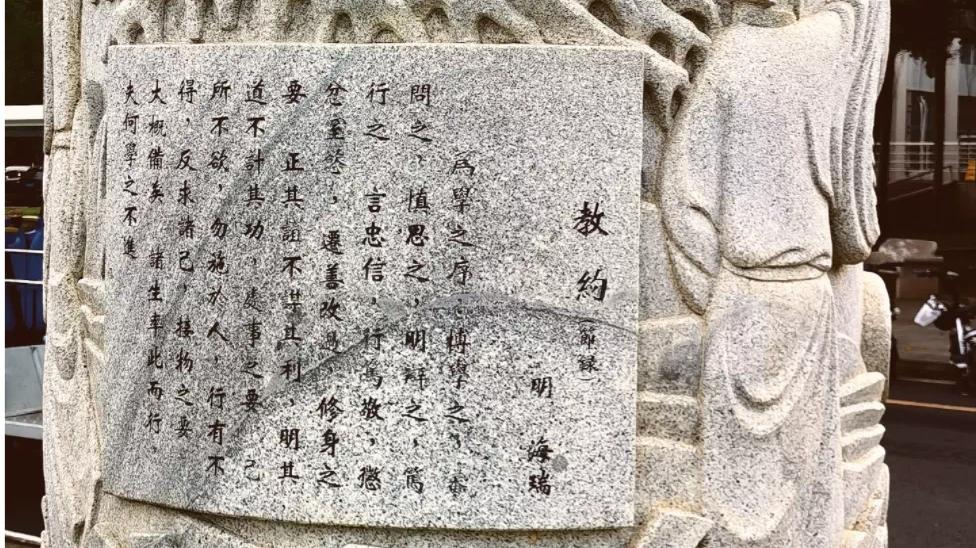 教約（節録）
明 海瑞
為學之序，博學之，審
問之，慎思之，明辯之，篤
行之 言忠信，行篤敬，懲
忿窒慾，遷善改過 修身之
要 正其誼不謀其利，明其
道不計其功，處事之要 己
所不欲，勿施於人，行有不
得，反求諸己，接物之要
大概備矣 諸生率此而行，
夫何學之不進